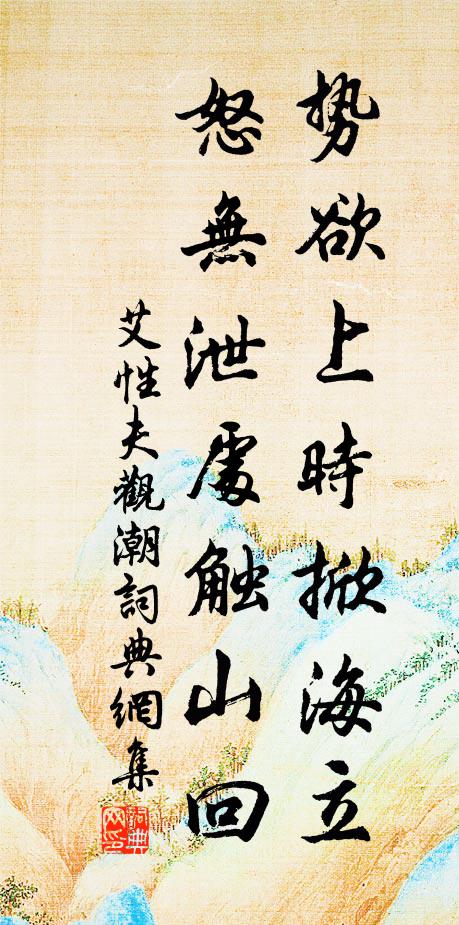 势欲上時掀海立
怒無泄處触山回
艾性夫觀潮詞典網集
詞典网印